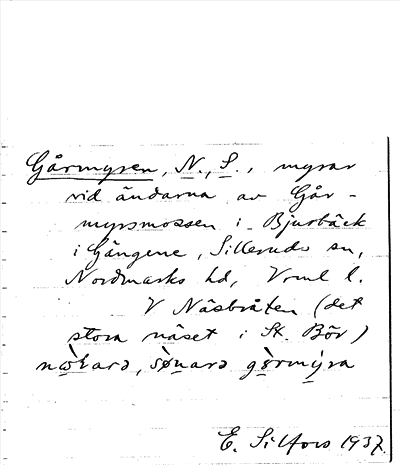 Gårmyren, N., S., myrar
vid ändarna av Går-
myrsmossen i Bjurbäck
i Gängene, Sillerud sn,
Nordmarks hd, Vrml l.
V Näsbråten (det
stora näset i St. Bör)
görmýra
E. Silfors 1937.